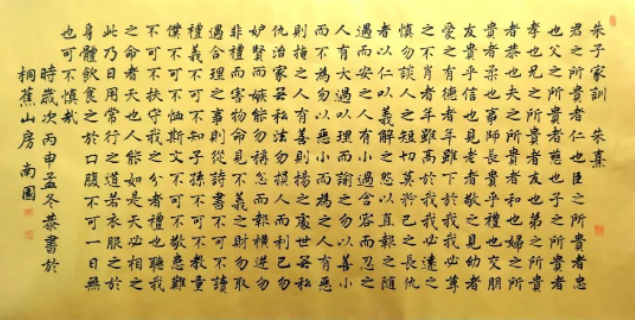 朱子家訓　朱熹
君之所貴者仁也臣之所貴者忠
也父之所貴者慈也子之所貴者
孝也兄之所貴者友也弟之所貴
者恭也夫之所貴者和也婦之所
貴者柔也事師長貴乎禮也交朋
友貴乎信也見老者敬之見幼者
愛之有德者年雖下於我我必尊
之不肖者年雖高於我我必遠之
慎勿談人之短切莫矜己之長仇
者以仁以義解之怨以直報之隨
遇而安之人有小過含容而忍之
人有大過以理而諭之勿以善小
而不為勿以惡小而為之人有惡
則掩之人有善則揚之處世無私
仇治家無私法勿損人而利己勿
妒賢而嫉能勿稱忿而報橫逆勿
非禮而害物命見不義之財勿取
遇合理之事則從詩書不可不讀
禮義不可不知子孫不可不教童
僕不可不恤斯文不可不敬患難
不可不扶守我之分者禮也聽我
之命者天也人能如是天必相之
此乃日用常行之道若衣服之於
身體飲食之於口腹不可一日無
也可不慎哉
時歲次丙申孟冬恭書於
桐蕉山房　南園